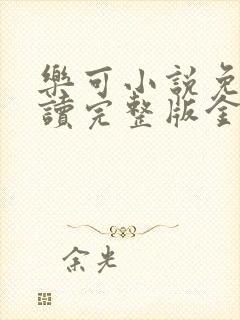 樂可小說免
讀完整版全
余光